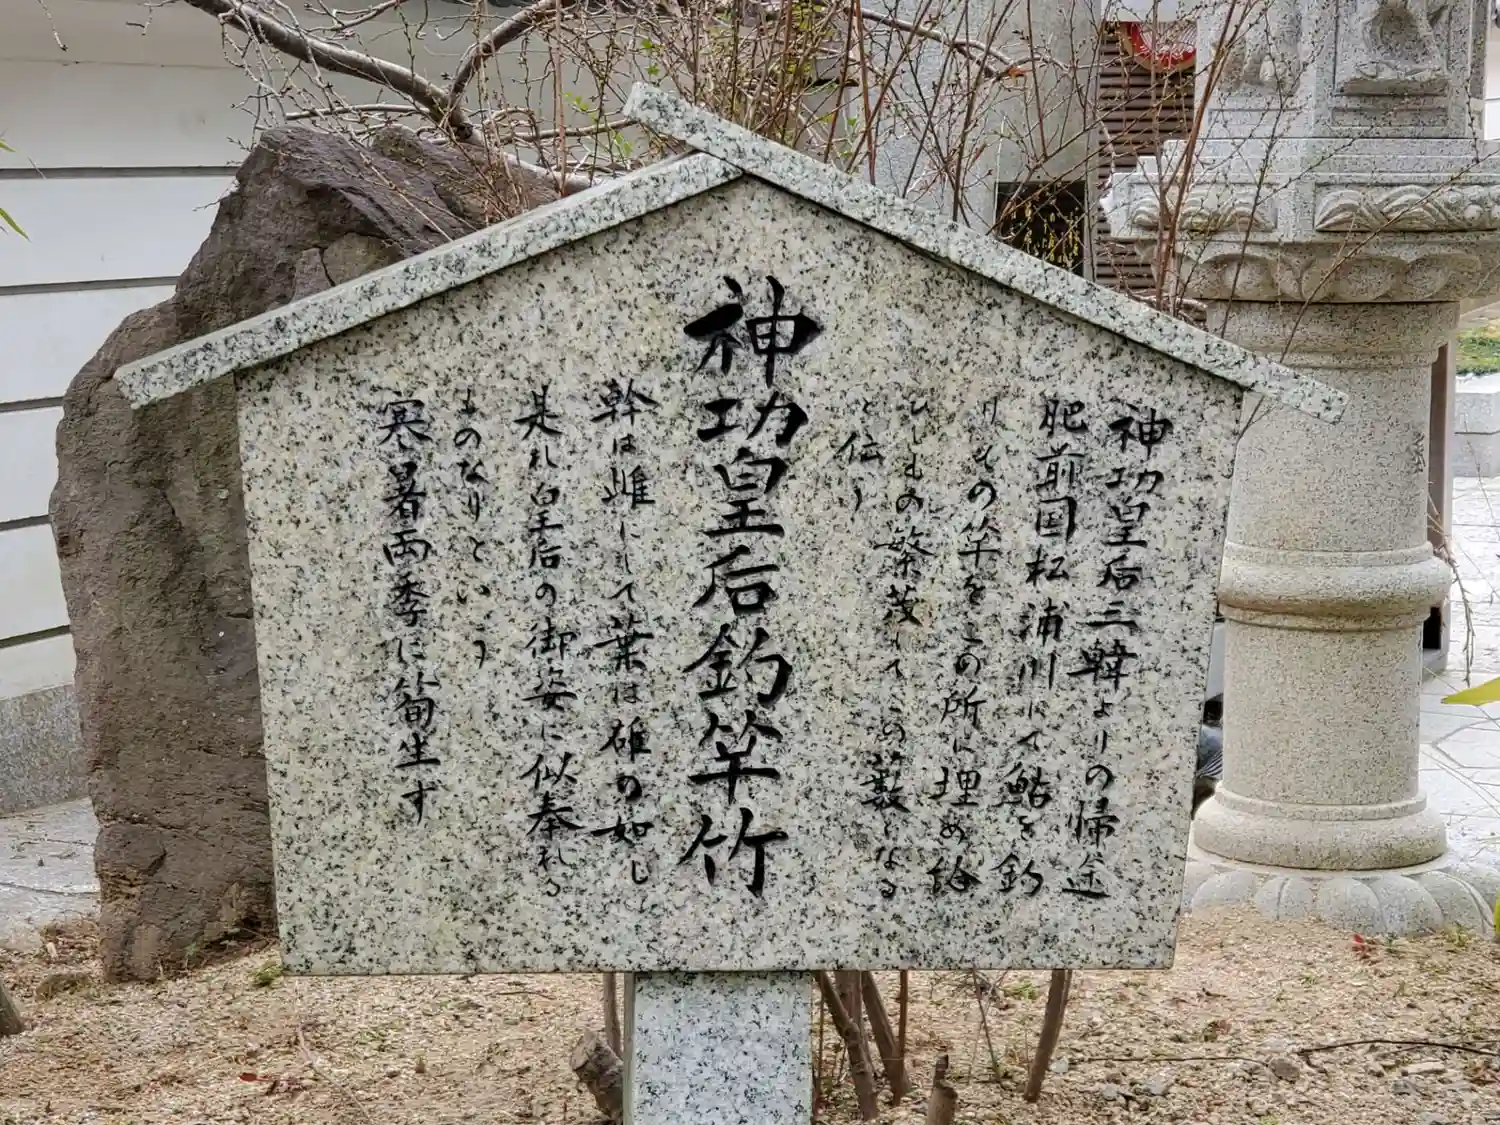 神功皇后三韓よりの帰途
肥前国松浦川にて鮎を釣
りしその竿をこの所に埋め給
ひしもの繁茂してこの藪となる
と伝う
神功皇后釣竿竹
幹は雌にして葉は雄の如し
是れ皇后の御姿に似奉れる
ものなりという
寒暑両季に筍生ず